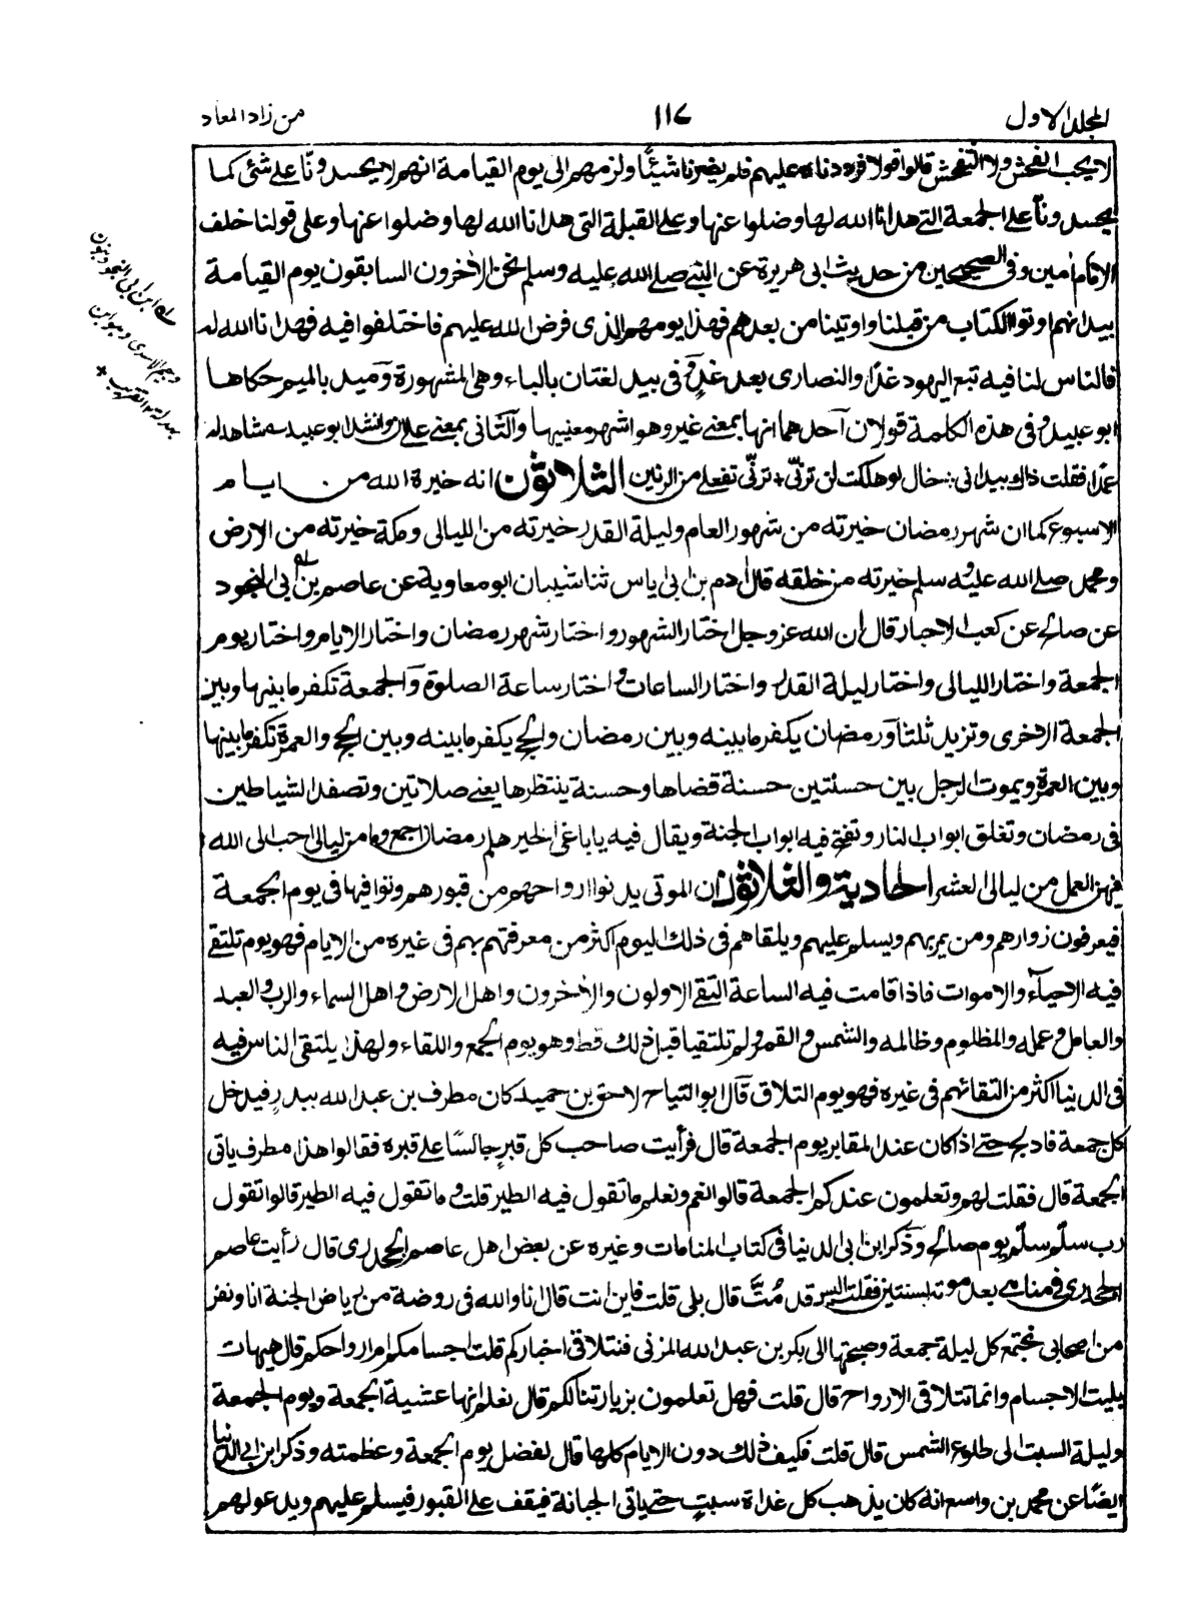 المجلد الاول
١١٧
من زاد المعاد
لا يحب الفحش ولا التفحش قالوا قولا فرددناه عليهم فلم يضرنا شيئا ولزمهم الى يوم القيامة انهم لا يحسدوننا على شئ كما
يحسدوننا على الجمعة التى هدانا الله لها وضلوا عنها وعلى القبلة التى هدانا الله لها وضلوا عنها وعلى قولنا خلف
الامام امين وفى الصحيحين من حديث ابى هريرة عن النبى صلى الله عليه وسلم نحن الاخرون السابقون يوم القيامة
بيد انهم اوتوا الكتاب من قبلنا واوتينا من بعدهم فهذا يومهم الذى فرض الله عليهم فاختلفوا فيه فهدانا الله له
فالناس لنا فيه تبع اليهود غدًا والنصارى بعد غدٍ وفى بيد لغتان بالباء وهى المشهورة وميد بالميم حكاها
ابو عبيد وفى هذه الكلمة قولان احدهما انها بمعنى غير وهو اشهر معنييها والثانى بمعنى على وانشد ابو عبيد شاهدا له
عمدًا فقلت ذاك بيد انى ؞ خال لو هلكت لن ترنّى + ترنّى تفعلى من الرنين الثلاثون انه خيرة الله من ايام
الاسبوع كما ان شهر رمضان خيرته من شهور العام وليلة القدر خيرته من الليالى ومكة خيرته من الارض
ومحمد صلى الله عليه وسلم خيرته من خلقه قال ادم بن ابى اياس ثنا شيبان ابو معاوية عن عاصم بن ابى النجود
عن صالح عن كعب الاحبار قال ان الله عز وجل اختار الشهور واختار شهر رمضان واختار الايام واختار يوم
الجمعة واختار الليالى واختار ليلة القدر واختار الساعات واختار ساعة الصلوة والجمعة تكفر ما بينها وبين
الجمعة الاخرى وتزيد ثلثا ورمضان يكفر ما بينه وبين رمضان والحج يكفر ما بينه وبين الحج والعمرة تكفر ما بينها
وبين العمرة ويموت الرجل بين حسنتين حسنة قضاها وحسنة ينتظرها يعنى صلاتين وتصفد الشياطين
فى رمضان وتغلق ابواب النار وتفتح فيه ابواب الجنة ويقال فيه يا باغى الخير هلم رمضان اجمع وما من ليالى احب الى الله
فيهن العمل من ليالى العشر الحادية والثلاثون ان الموتى يدنو ارواحهم من قبورهم وتوافيها فى يوم الجمعة
فيعرفون زوارهم ومن يمر بهم ويسلم عليهم ويلقاهم فى ذلك اليوم اكثر من معرفتهم بهم فى غيره من الايام فهو يوم تلتقى
فيه الاحياء والاموات فاذا قامت فيه الساعة التقى الاولون والاخرون واهل الارض واهل السماء والرب والعبد
والعامل وعمله والمظلوم وظالمه والشمس والقمر ولم تلتقيا قبل ذلك قط وهو يوم الجمع واللقاء ولهذا يلتقى الناس فيه
فى الدنيا اكثر من التقائهم فى غيره فهو يوم التلاق قال ابو التياح لاحق بن حميد كان مطرف بن عبد الله يبدر فيدخل
كل جمعة فادلج حتى اذا كان عند المقابر يوم الجمعة قال فرأيت صاحب كل قبر جالسًا على قبره فقالوا هذا مطرف ياتى
الجمعة قال فقلت لهم وتعلمون عندكم الجمعة قالوا نعم ونعلم ما تقول فيه الطير قلت وما تقول فيه الطير قالوا تقول
رب سلّم سلّم يوم صالح وذكر ابن ابى الدنيا فى كتاب المنامات وغيره عن بعض اهل عاصم الجحدرى قال رأيت عاصم
الجحدرى فى منامى بعد موته بسنتين فقلت اليس قد مُتَّ قال بلى قلت فاين انت قال انا والله فى روضة من رياض الجنة انا ونفر
من اصحابى نجتمع كل ليلة جمعة وصبحتها الى بكر بن عبد الله المزنى فنتلاقى اخباركم قلت اجسامكم ام ارواحكم قال هيهات
بليت الاجسام وانما تتلاقى الارواح قال قلت فهل تعلمون بزيارتنا لكم قال نعلم انها عشية الجمعة ويوم الجمعة
وليلة السبت الى طلوع الشمس قال قلت فكيف ذلك دون الايام كلها قال لفضل يوم الجمعة وعظمته وذكر ابن ابى الدنيا
ايضًا عن محمد بن واسع انه كان يذهب كل غداة سبت حتى ياتى الجبانة فيقف على القبور فيسلم عليهم ويدعو لهم
له ابن ابى النجود بنون
وجيم الاسدى وهو ابن
بهدلة ١٢ تقريب +